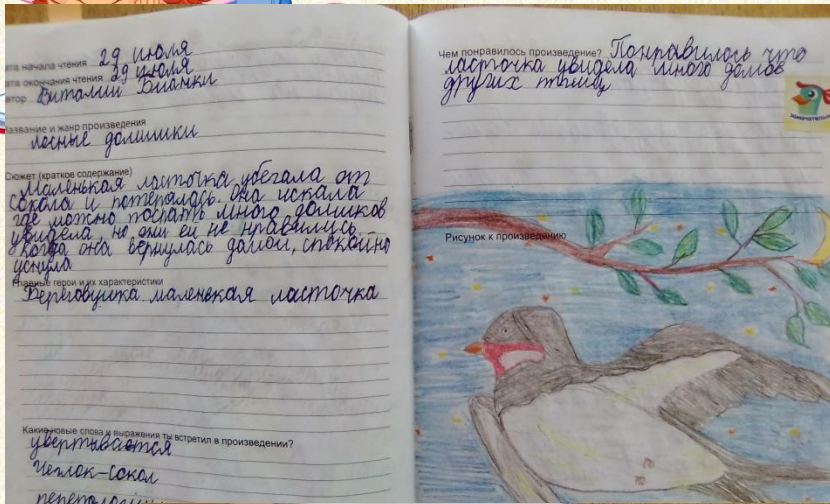 дата начала чтения 29 июля
дата окончания чтения 29 июля
автор Виталий Бианки
название и жанр произведения
лесные домишки
Сюжет (краткое содержание)
Маленькая ласточка убегала от
сокола и потерялась. Она искала
где можно поспать много домиков
увидела, но они ей не нравились.
Когда она вернулась домой, спокойно
уснула
Главные герои и их характеристики
Береговушка маленькая ласточка
Какие новые слова и выражения ты встретил в произведении?
увертывается
Чеглок-сокол
Чем понравилось произведение? Понравилось что
ласточка увидела много домов
других птиц
Рисунок к произведению